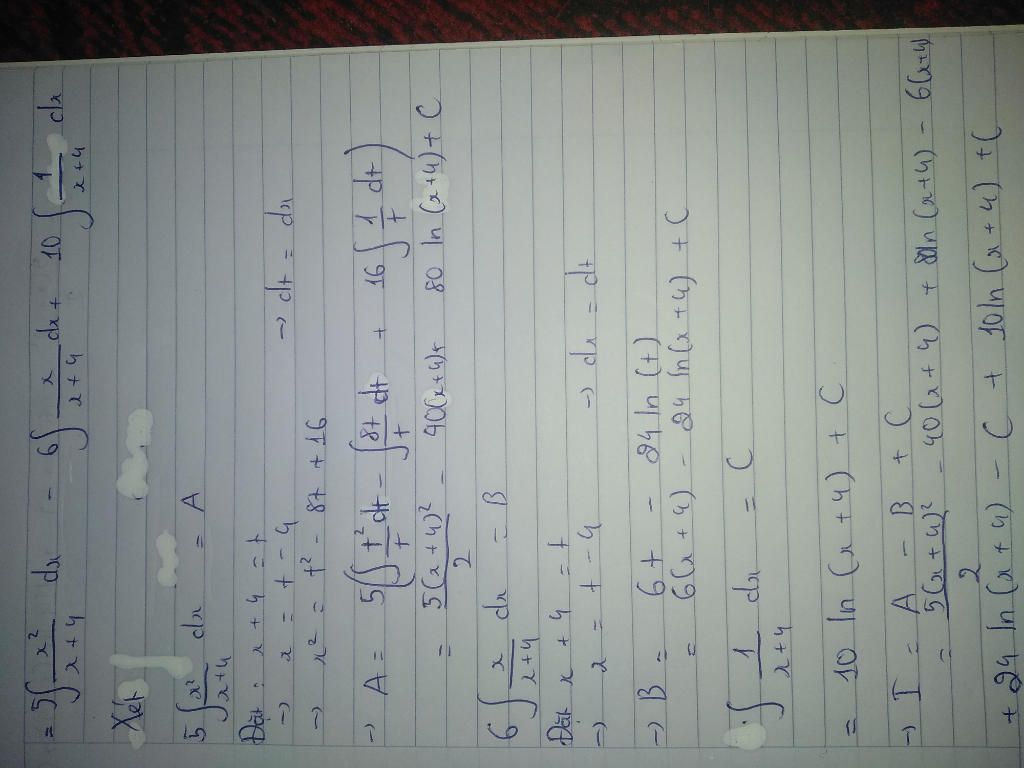 = 5∫ x²/(x+4) dx - 6∫ x/(x+4) dx + 10 ∫ 1/(x+4) dx
Xét
5∫ x²/(x+4) dx = A
Đặt: x + 4 = t
→ x = t - 4 → dt = dx
→ x² = t² - 8t + 16
→ A = 5(∫ t²/t dt - ∫ 8t/t dt + 16 ∫ 1/t dt)
= 5(x+4)²/2 - 40(x+4) + 80 ln(x+4) + C
6∫ x/(x+4) dx = B
Đặt x + 4 = t
→ x = t - 4 → dx = dt
→ B = 6t - 24 ln(t)
= 6(x+4) - 24 ln(x+4) + C
∫ 1/(x+4) dx = C
= 10 ln(x+4) + C
→ I = A - B + C
= 5(x+4)²/2 - 40(x+4) + ln(x+4) - 6(x+4)
+ 24 ln(x+4) - C + 10 ln(x+4) + C